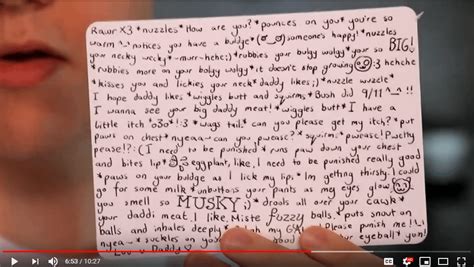 Rawr X3 *nuzzles* How are you? *pounces on you* you're so
warm *notices you have a buldge* someone's happy! *nuzzles
your necky wecky* ~murr~ hehe ;) *rubbies your bulgy wolgy* your so BIG!
*rubbies more on your bolgy wolgy* it doesn't stop growing hehehe
*kisses you and lickies your neck* daddy likes ;) *nuzzle wuzzle*
I hope daddy likes *wiggles butt and squirms* Bush did 9/11 ^_^!!
I wanna see your big daddy meat! *wiggles butt* I have a
little itch *wags tail* can you please get my itch? *put
paws on chest* nyea~ can you pwease? *squirms* pwease! Pwehy
pease!?:( I need to be punished *runs paw down your chest
and bites lip* eggplant, like, I need to be punished really good
*paws on your buldge as I lick my lips* I'm getting thirsty. I could
go for some milk *unbuttons your pants as my eyes glow*
you smell so MUSKY ;) *drools all over your cawk*
your daddi meat. I like. Miste fuzzy balls. *puts snout on
balls and inhales deeply* Please punish me!
nyea~ *suckles on your eyeball yum!
Daddy
6:53 / 10:27